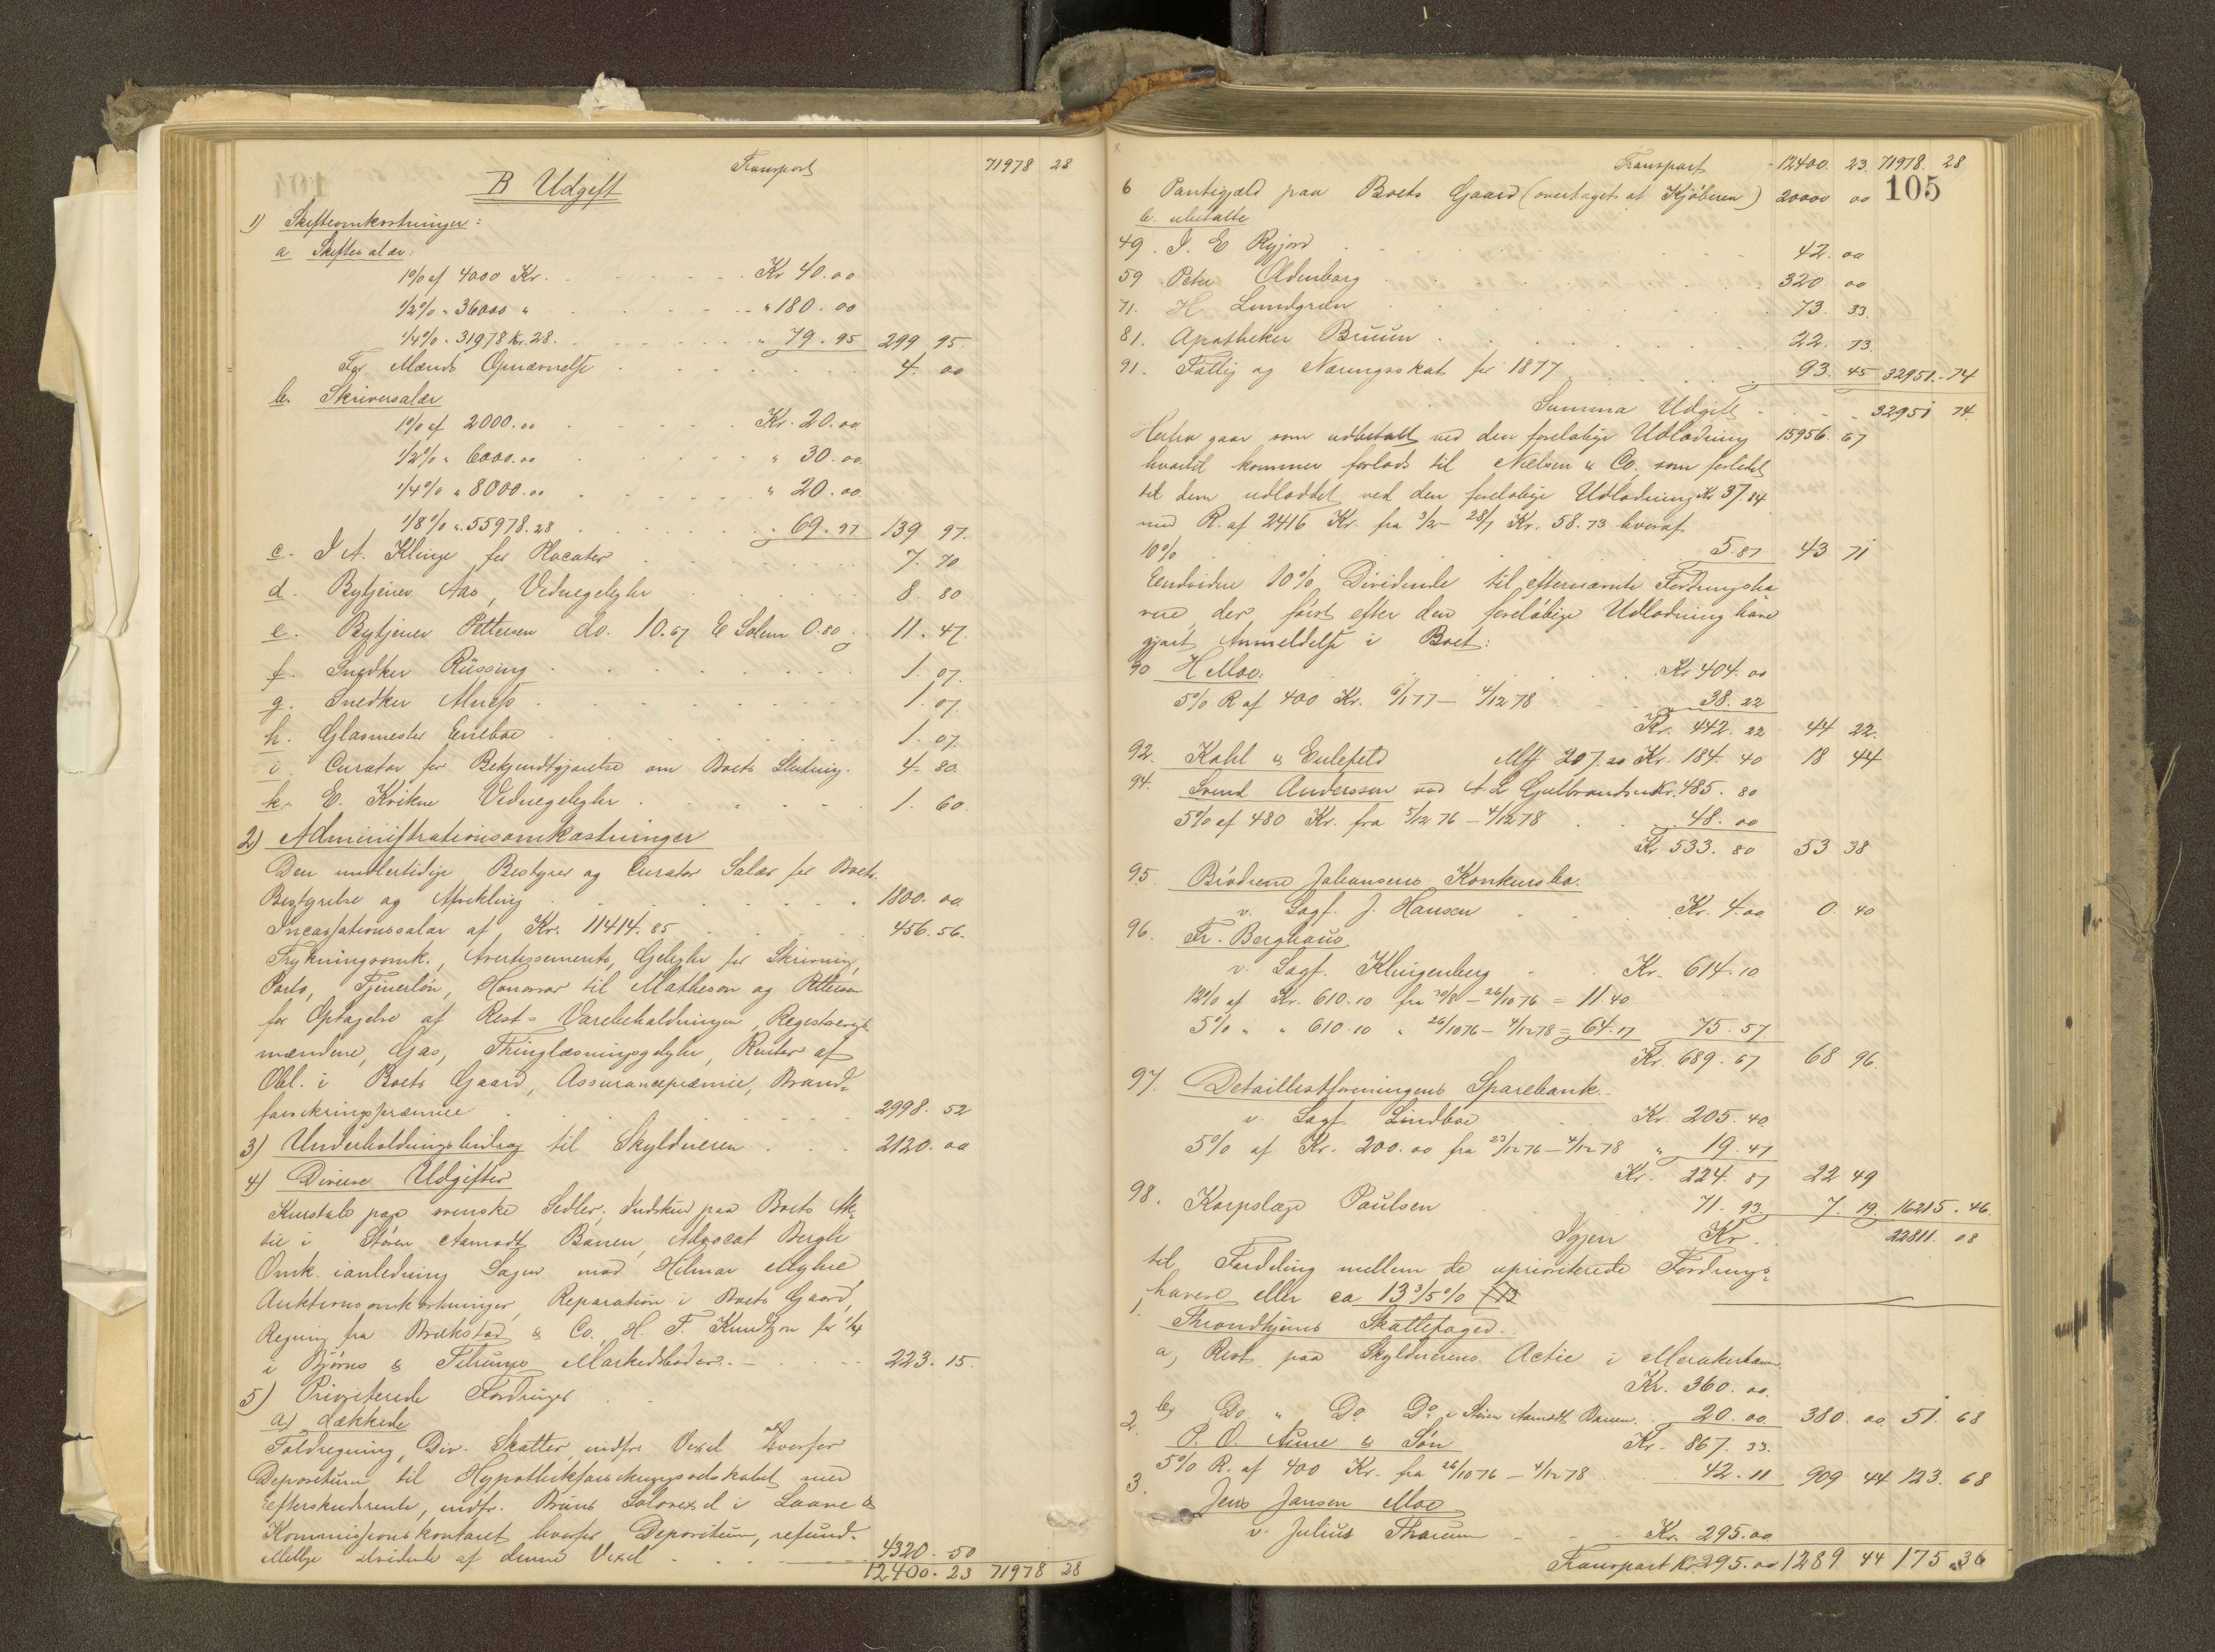 Transport 71978 28
B Udgift
1) Skifteomkostninger:
a Skiftesalær:
1% af 4000 Kr. Kr 40.00
1/2% " 36000 " " 180.00
1/4% " 31978 Kr. 28. " 79.95 299 95.
For Mænds Opnævnelse 4. 00
b. Skriversalær
1% af 2000.00 Kr. 20.00
1/2% " 6000.00 " 30.00
1/4% " 8000.00 " 20.00
1/8% " 55978.28 " 69.97 139 97.
c. I. A. Klinge for Placater 7. 70
d. Bytjener Aas, Vidnegebyhr 8 80
e. Bytjener Pettersen do. 10.67 E Solem 0.80 11. 47
f. Snedker Rüssing 1. 07.
g. Snedker Alness 1. 07.
h. Glasmester Eneboe 1. 07.
i Curator for Bekjendtgjørelse om Boets Slutning. 4. 80
k. E. Kvikne Vidnegebyhr 1. 60.
2) Administrationsomkostninger
Den midlertidige Bestyrer og Curator Salær for Boets
Bestyrelse og Afvikling 1800. 00
Incassationssalær af Kr. 11414.85 456.56.
Trykningsomk., Avertissements, Gebyhr for Skrivning,
Porto, Tjenerløn, Honorar til Matheson og Petterson
for Optagelse af Rest-Varebeholdningen, Registrerings-
mændene, Gas, Thinglæsningsgebyhr, Renter af
Obl. i Boets Gaard, Assurancepræmie, Brand-
forsikringspræmie 2998. 52
3) Underholdningsbidrag til Skyldneren 2120. 00
4) Diverse Udgifter
Kurstab paa svenske Sedler, Indskud paa Boets Ak-
tie i Støren Aamodt Banen, Advocat Bergh
Omk. ianledning Sagen mod Hilmar Myhre,
Auktionsomkostninger, Reparation i Boets Gaard,
Regning fra Brækstad & Co., H. F. Knudtzon for 1/4
i Bjørns & Titrungs Markedsboder. 223. 15.
5) Prioriterede Fordringer
a) dækkede
Toldregning, Div. Skatter, indfr. Vexel hvorfor
Depositum til Hypothekforsikringsselskabet med
Efterskudsrente, indfr. Bruns Solavexel i Laane &
Kommissionskontoret hvorfor Depositum, refund.
Mellbye dividende af denne Vexel 4320. 50
12400. 23 71978 28
Transport 12400. 23. 71978. 28
105
6 Pantegjæld paa Boets Gaard (overtaget af Kjøberen) 20000 00
b. ubetalte
49. I. E Ryjord 42. 00
59 Peter Oldenborg 320 00
71. H Lundgreen 73. 33.
81. Apotheker Bruun 22. 73
91. Fattig og Næringsskat for 1877 93. 45 32951.74
Summa Udgift 32951 74.
Herfra gaar som udbetalt ved den foreløbige Udlodning 15956. 67
hvortil kommer forlods til Nielsen & Co. som forlidet
til dem udloddet ved den foreløbige Udlodning Kr 37.84
med R. af 2416 Kr. fra 3/2 - 28/7 Kr. 58.73 hvoraf
10% 5.87 43 71
Endvidere 10% Dividende til efternævnte Fordringsha
vere, der først efter den foreløbige Udlodning have
gjort Anmeldelse i Boet:
90 H Moe. Kr 404.00
5% R af 400 Kr. 6/1 77 - 4/12 78 38.22
Kr. 442. 22 44 22.
92. Kahl & Eulefeld Mk 207.20 Kr. 184. 40 18 44
94. Svend Anderssen ved A L Gulbrandsen Kr. 485. 80
5% af 480 Kr. fra 5/12 76 - 4/12 78 48.00
Kr 533. 80 53 38
95. Brødrene Johansens Konkursbo.
v. Sagf. J. Hansen Kr. 4.00 0. 40
96. Fr. Berghaus.
v. Sagf. Klingenberg Kr. 614.10
12% af Kr. 610.10 fra 30/8 - 26/10 76 = 11.40
5% " " 610.10 " 26/10 76 - 4/12 78 = 64.17 75.57.
Kr. 689.67 68 96.
97. Detaillistforeningens Sparebank.
v. Sagf. Lindboe Kr. 205.40
5% af Kr. 200.00 fra 23/12 76 - 4/12 78 " 19.47
Kr. 224. 87 22 49
98. Korpslæge Paulsen 71. 93. 7. 19. 16215.46.
Igjen Kr. 22811.08
til Fordeling mellem de uprioriterede Fordrings-
havere eller ca 13 3/5%
1. Throndhjems Skattefoged.
a, Rest paa Skyldnerens Actie i Merakerbanen
Kr. 360.00.
b, Do " Do Do i Støren Aamodt Banen. 20.00 380. 00. 51. 68
2. P. O. Aune & Søn Kr. 867. 33.
5% R. af 400 Kr. fra 26/10 76 - 4/12 78 42.11 909 44 123. 68
3. Jens Jansen Moe
v. Julius Thaulow Kr. 295.00
Transport Kr. 295.00 1289 44 175.36